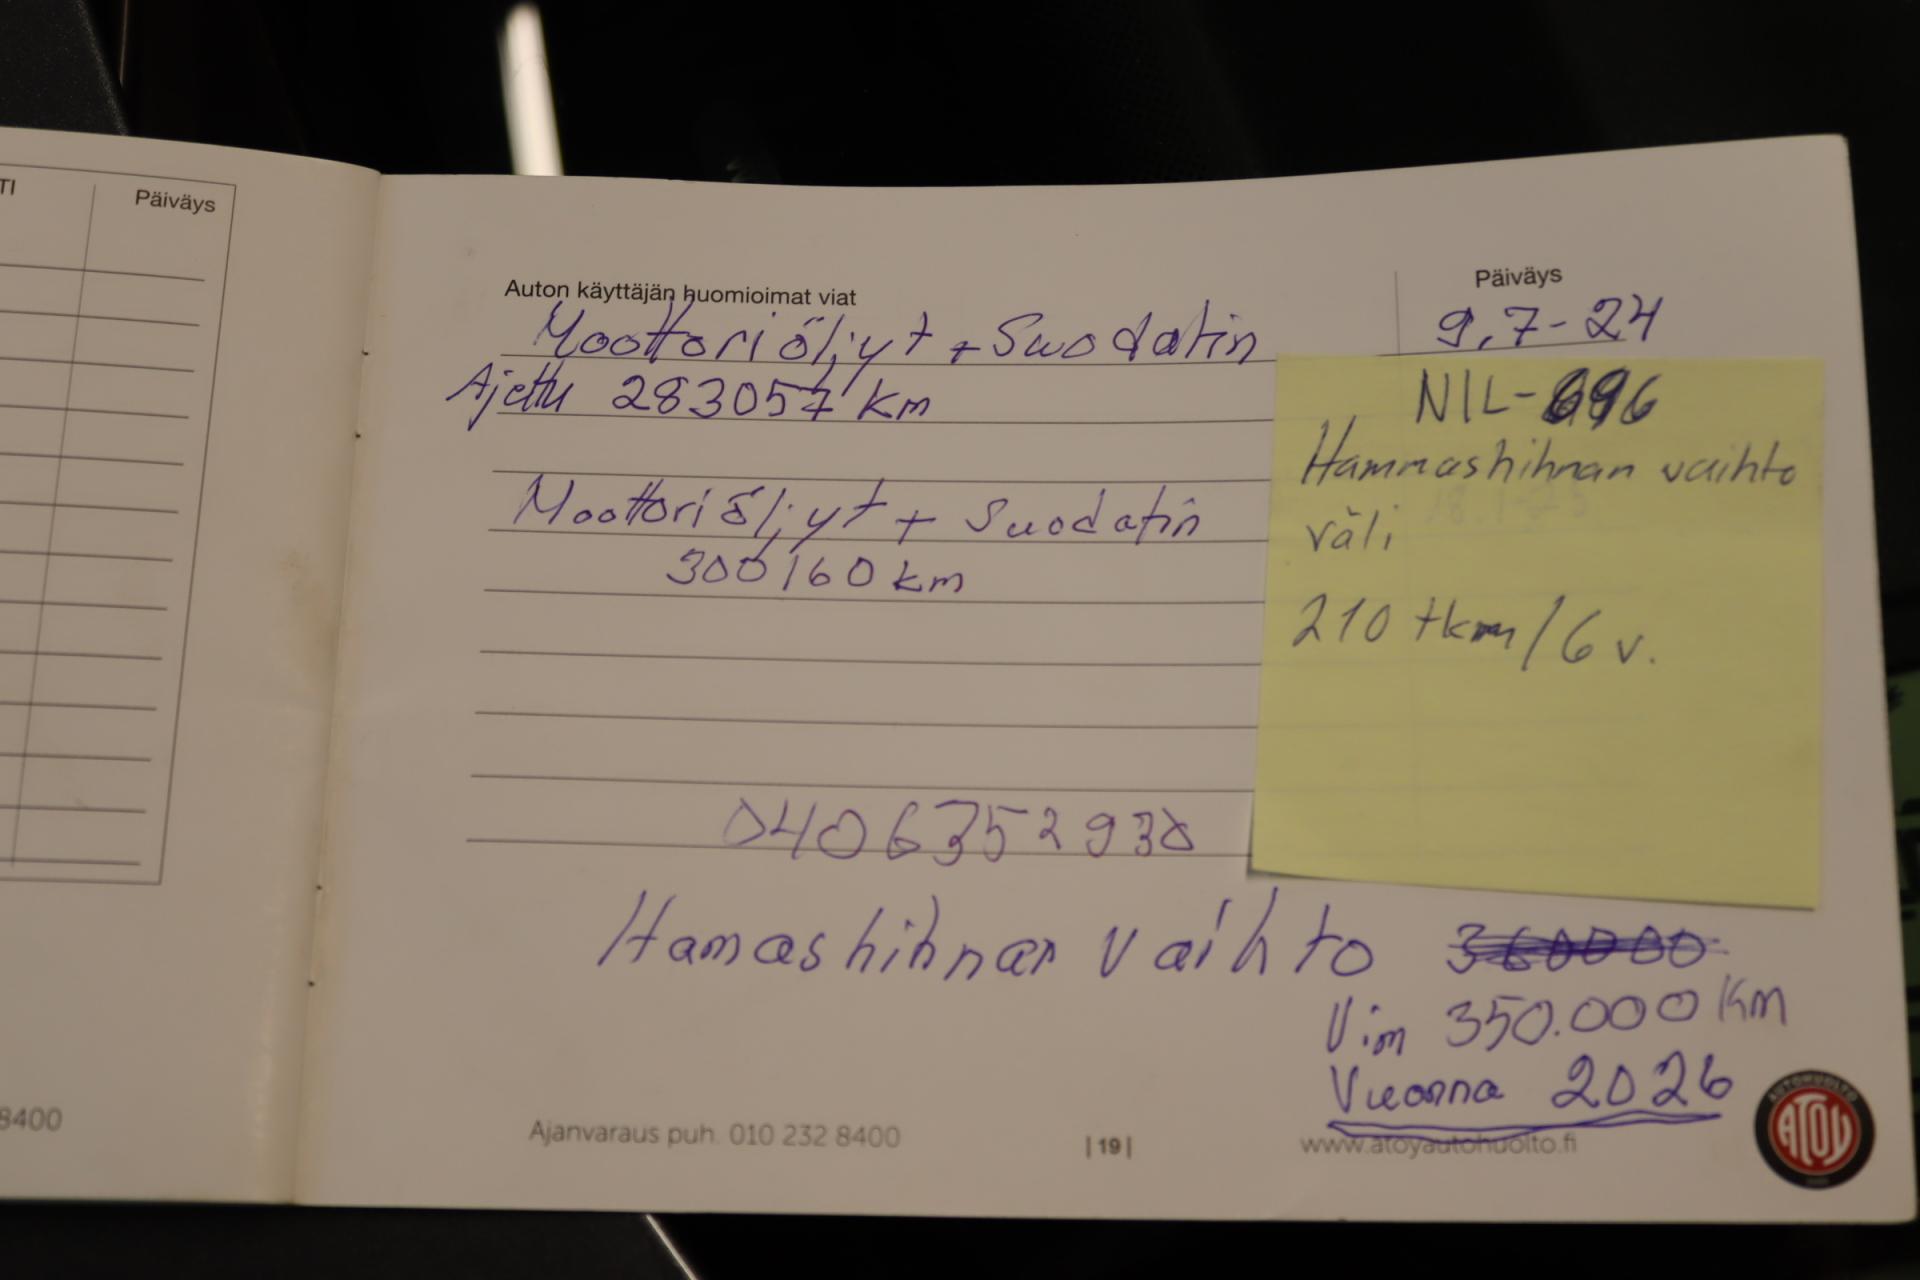 TI
Päiväys
8400
Auton käyttäjän huomioimat viat
Päiväys
Moottoriöljyt + Suodatin
9.7-24
Ajettu 283057 km
Moottoriöljyt + Suodatin
300160 km
NIL-696
Hammashihnan vaihto
väli
210 tkm/6 v.
0406352938
Hamashihnan vaihto
360000
Vim 350.000 km
Vuonna 2026
Ajanvaraus puh. 010 232 8400
| 19 |
www.atoyautohuolto.fi
AUTOHUOLTO
ATOY